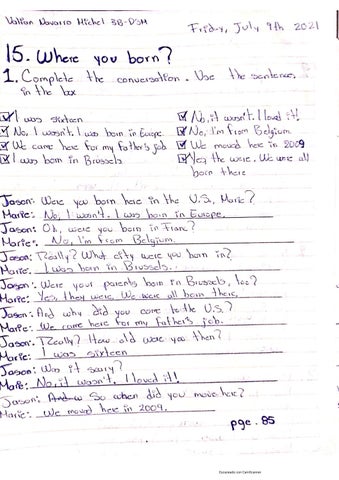 Valtian Navarro Michel 3B-DSM
Friday, July 9th 2021
15. Where you born?
1. Complete the conversation. Use the sentence
in the box
I was sixteen
No, it wasn't. I loved it!
No, I wasn't. I was born in Europe
No, I'm from Belgium
We came here for my father's job
We moved here in 2009
I was born in Brussels
Yes, the were. We were all
born there
Jason: Were you born here in the U.S, Marie?
Marie: No, I wasn't. I was born in Europe.
Jason: Oh, were you born in Franc?
Marie: No, I'm from Belgium
Jason: Really? What city were you born in?
Marie: I was born in Brussels.
Jason: Were your parents born in Brussels, too?
Marie: Yes, they were. We were all born there.
Jason: And why did you come to the U.S.?
Marie: We came here for my father's job.
Jason: Really? How old were you then?
Marie: I was sixteen
Jason: Was it scary?
Marie: No, it wasn't. I loved it!
Jason: So when did you move here?
Marie: We moved here in 2009.
pge. 85
Escaneado con CamScanner